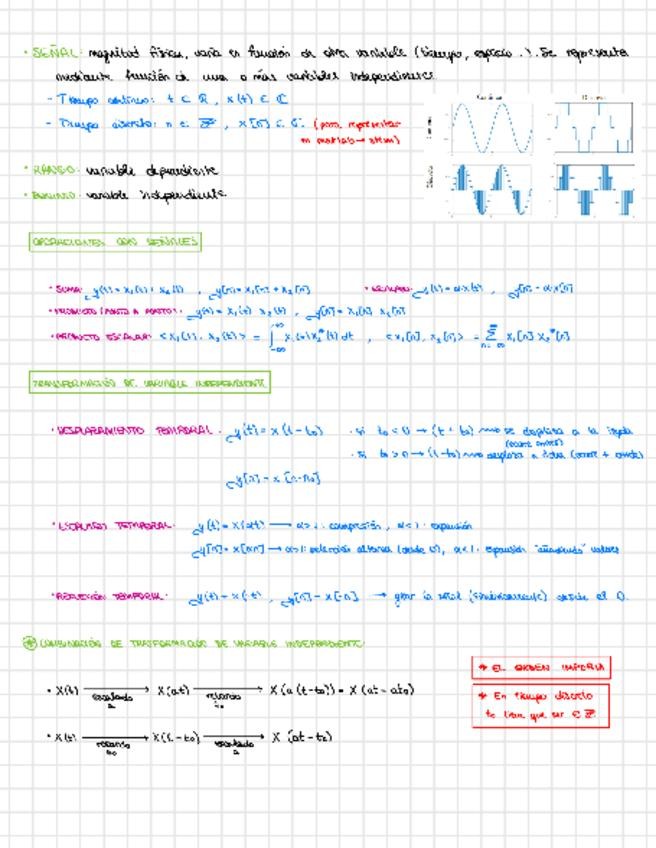 · SEÑAL: magnitud física, varía en función de otra variable (tiempo, espacio..). Se representa
mediante función de una o más variables independientes
- Tiempo continuo: t ∈ ℝ, x(t) ∈ ℂ
- Tiempo discreto: n ∈ ℤ, x[n] ∈ ℂ (para representar
en matlab → stem)
· RANGO: variable dependiente
· DOMINIO: variable independiente
OPERACIONES CON SEÑALES
· SUMA: y(t) = x₁(t) + x₂(t) , y[n] = x₁[n] + x₂[n]
· y(t) = α·x(t) , y[n] = α·x[n]
· PRODUCTO (PUNTO A PUNTO): y(t) = x₁(t) x₂(t) , y[n] = x₁[n] x₂[n]
· PRODUCTO ESCALAR: <x₁(t), x₂(t)> = ∫_{-∞}^{+∞} x₁(t) x₂*(t) dt , <x₁[n], x₂[n]> = Σ_{n=-∞}^{∞} x₁[n] x₂*[n]
TRANSFORMACIÓN DE VARIABLE INDEPENDIENTE
· DESPLAZAMIENTO TEMPORAL: y(t) = x(t - t₀) · si t₀ < 0 → (t + t₀) se desplaza a la izqda
(ocurre antes)
· si t₀ > 0 → (t - t₀) desplaza a dcha (ocurre)
y[n] = x[n-n₀]
· ESCALADO TEMPORAL: y(t) = x(αt) → α>1: compresión, α<1: expansión
y[n] = x[αn] → α>1: (desde 0), α<1: expansión "añadiendo" valores
· REFLEXIÓN TEMPORAL: y(t) = x(-t) , y[n] = x[-n] → girar la señal desde el 0.
COMBINACIÓN DE TRASFORMACIÓN DE VARIABLE INDEPENDIENTE
* EL ORDEN IMPORTA
· x(t) → escalado a x(at) → retardo t₀ x(a(t-t₀)) = x(at - at₀)
* En tiempo discreto
tα tiene que ser ∈ ℤ
· x(t) → retardo t₀ x(t - t₀) → escalado a x(at - t₀)